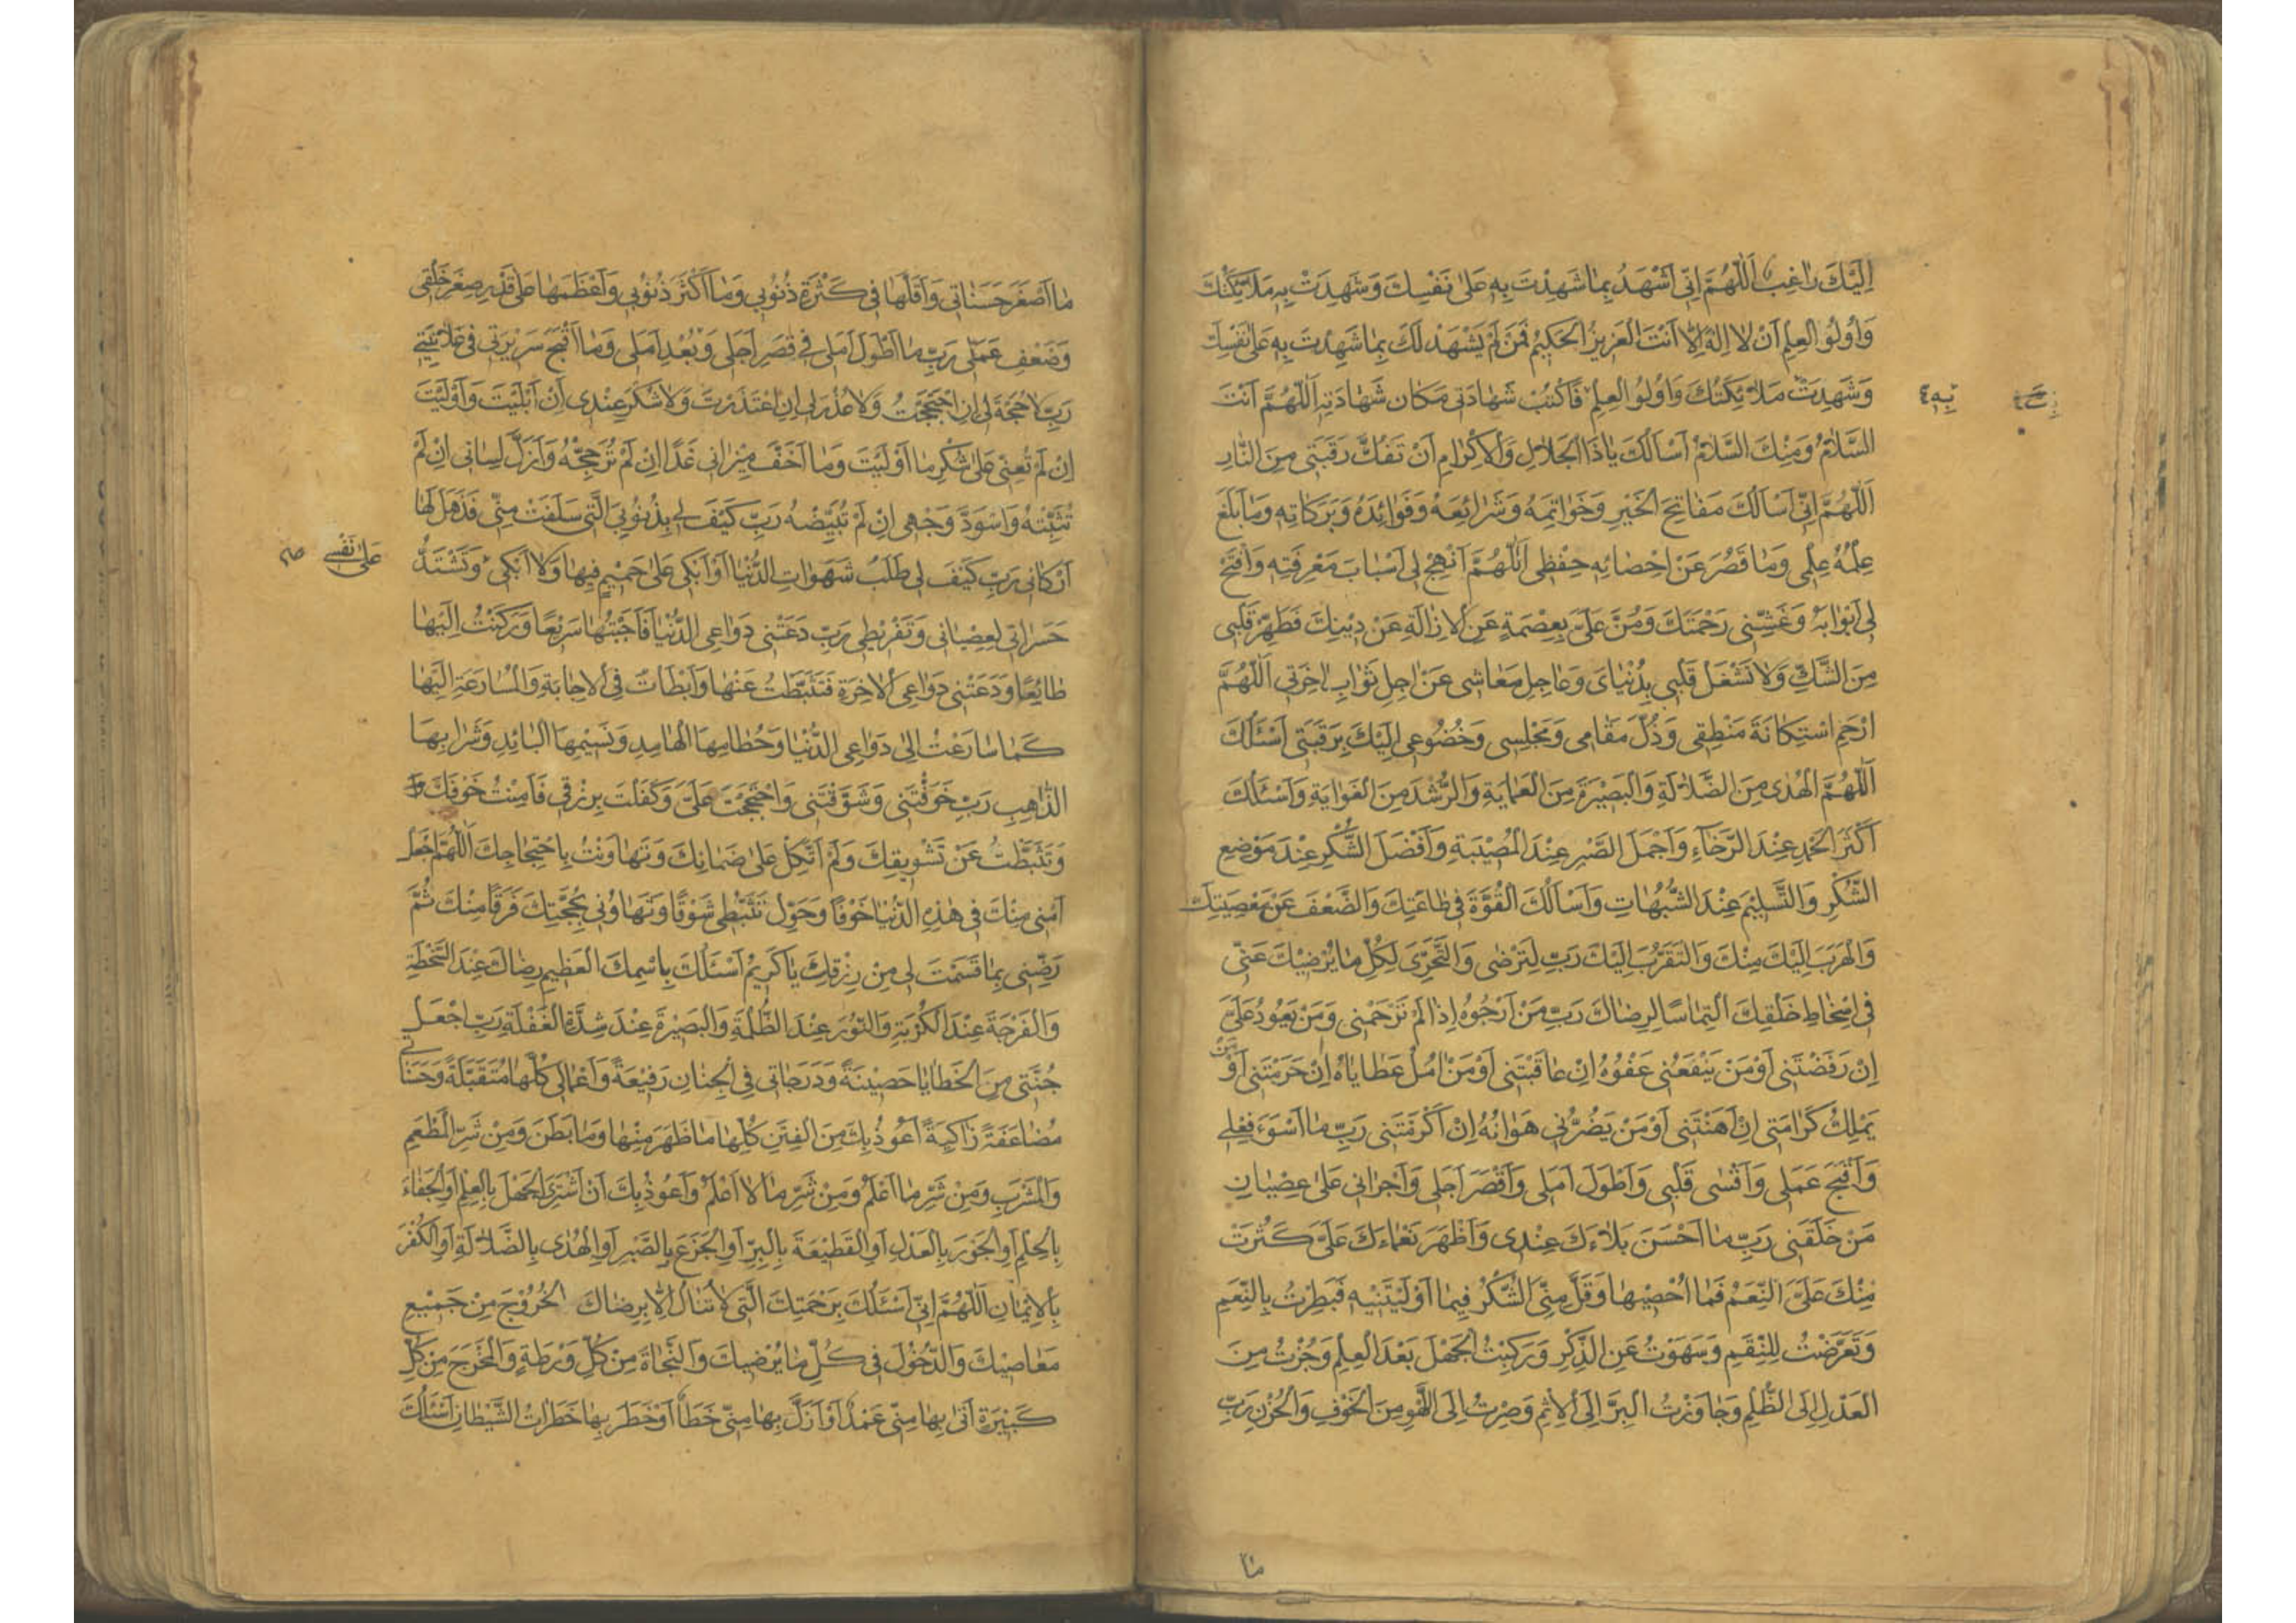 اِلَيْكَ رٰاغِبٌ اَللّٰهُمَّ اِنّى اَشْهَدُ بِمٰا شَهِدْتَ بِهِ عَلىٰ نَفْسِكَ وَشَهِدَتْ بِهِ مَلٰۤئِكَتُكَ
وَاُولُو الْعِلْمِ اَنْ لٰا اِلٰهَ اِلّٰا اَنْتَ الْعَزِيزُ الْحَكِيمُ فَمَنْ لَمْ يَشْهَدْ لَكَ بِمٰا شَهِدْتَ بِهِ عَلىٰ نَفْسِكَ
وَشَهِدَتْ مَلٰۤئِكَتُكَ وَاُولُو الْعِلْمِ فَاكْتُبْ شَهٰادَتى مَكٰان شَهٰادَتِهِ اَللّٰهُمَّ اَنْتَ
بِهِ ٤
السَّلٰامُ وَمِنْكَ السَّلٰامُ اَسْاَلُكَ يٰا ذَا الْجَلٰالِ وَالْاِكْرٰامِ اَنْ تَفُكَّ رَقَبَتى مِنَ النّٰارِ
اَللّٰهُمَّ اِنّى اَسْاَلُكَ مَفٰاتِحَ الْخَيْرِ وَخَوٰاتِمَهُ وَشَرٰائِعَهُ وَفَوٰائِدَهُ وَبَرَكٰاتِهِ وَمٰا بَلَغَ
عِلْمُهُ عِلْمى وَمٰا قَصُرَ عَنْ اِحْصٰائِهِ حِفْظى اَللّٰهُمَّ اَنْهِجْ لى اَسْبٰابَ مَعْرِفَتِهِ وَافْتَحْ
لى اَبْوٰابَهُ وَغَشِّنى رَحْمَتَكَ وَمُنَّ عَلَىَّ بِعِصْمَةٍ عَنِ الْاِزٰالَةِ عَنْ دِيْنِكَ فَطَهِّرْ قَلْبى
مِنَ الشَّكِّ وَلٰا تَشْغَلْ قَلْبى بِدُنْيٰاىَ وَعٰاجِلِ مَعٰاشى عَنْ اٰجِلِ ثَوٰابِ اٰخِرَتى اَللّٰهُمَّ
ارْحَمِ اسْتِكٰانَةَ مَنْطِقى وَذُلَّ مَقٰامى وَمَجْلِسى وَخُضُوعى اِلَيْكَ بِرَقَبَتى اَسْئَلُكَ
اَللّٰهُمَّ الْهُدٰى مِنَ الضَّلٰالَةِ وَالْبَصِيْرَةَ مِنَ الْعَمٰايَةِ وَالرُّشْدَ مِنَ الْغَوٰايَةِ وَاَسْئَلُكَ
اَكْثَرَ الْحَمْدِ عِنْدَ الرَّخٰاۤءِ وَاَجْمَلَ الصَّبْرِ عِنْدَ الْمُصِيْبَةِ وَاَفْضَلَ الشُّكْرِ عِنْدَ مَوْضِعِ
الشُّكْرِ وَالتَّسْلِيْمَ عِنْدَ الشُّبُهٰاتِ وَاَسْاَلُكَ الْقُوَّةَ فى طٰاعَتِكَ وَالضَّعْفَ عَنْ مَعْصِيَتِكَ
وَالْهَرَبَ اِلَيْكَ مِنْكَ وَالتَّقَرُّبَ اِلَيْكَ رَبِّ لِتَرْضٰى وَالتَّحَرِّىَ لِكُلِّ مٰا يُرْضيْكَ عَنّى
فى اِسْخٰاطِ خَلْقِكَ الْتِمٰاسًا لِرِضٰاكَ رَبِّ مَنْ اَرْجُوهُ اِذٰا لَمْ تَرْحَمْنى وَمَنْ يَعُودُ عَلَىَّ
اِنْ رَفَضْتَنى اَوْ مَنْ يَنْفَعُنى عَفْوُهُ اِنْ عٰاقَبْتَنى اَوْ مَنْ اٰمُلُ عَطٰايٰاهُ اِنْ حَرَمْتَنى اَوْ مَنْ
يَمْلِكُ كَرٰامَتى اِنْ اَهَنْتَنى اَوْ مَنْ يَضُرُّنى هَوٰانُهُ اِنْ اَكْرَمْتَنى رَبِّ مٰا اَسْوَءَ فِعْلى
وَاَقْبَحَ عَمَلى وَاَقْسٰى قَلْبى وَاَطْوَلَ اَمَلى وَاَقْصَرَ اَجَلى وَاَجْرَانى عَلىٰ عِصْيٰانِ
مَنْ خَلَقَنى رَبِّ مٰا اَحْسَنَ بَلٰاءَكَ عِنْدى وَاَظْهَرَ نَعْمٰاءَكَ عَلَىَّ كَثُرَتْ
مِنْكَ عَلَىَّ النِّعَمُ فَمٰا اُحْصيْهٰا وَقَلَّ مِنِّى الشُّكْرُ فيمٰا اَوْلَيْتَنيْهِ فَبَطِرْتُ بِالنِّعَمِ
وَتَعَرَّضْتُ لِلنِّقَمِ وَسَهَوْتُ عَنِ الذِّكْرِ وَرَكِبْتُ الْجَهْلَ بَعْدَ الْعِلْمِ وَجُزْتُ مِنَ
الْعَدْلِ اِلَى الظُّلْمِ وَجٰاوَزْتُ الْبِرَّ اِلَى الْاِثْمِ وَصِرْتُ اِلَى اللَّهْوِ مِنَ الْخَوْفِ وَالْحُزْنِ رَبِّ
مٰا
مٰا اَصْغَرَ حَسَنٰاتى وَاَقَلَّهٰا فى كَثْرَةِ ذُنُوبى وَمٰا اَكْثَرَ ذُنُوبى وَاَعْظَمَهٰا عَلىٰ قَدْرِ صِغَرِ خَلْقى
وَضَعْفِ عَمَلى رَبِّ مٰا اَطْوَلَ اَمَلى فى قِصَرِ اَجَلى وَبُعْدِ اَمَلى وَمٰا اَقْبَحَ سَرِيْرَتى فى عَلٰانِيَتى
رَبِّ لٰا حُجَّةَ لى اِنِ احْتَجَجْتُ وَلٰا عُذْرَ لى اِنِ اعْتَذَرْتُ وَلٰا شُكْرَ عِنْدى اَنْ اَبْلَيْتَ وَاَوْلَيْتَ
اِنْ لَمْ تُعِنّى عَلىٰ شُكْرِ مٰا اَوْلَيْتَ وَمٰا اَخَفَّ ميْزٰانى غَدًا اِنْ لَمْ تُرَجِّحْهُ وَاَزَلَّ لِسٰانى اِنْ لَمْ
تُثَبِّتْهُ وَاَسْوَدَّ وَجْهى اِنْ لَمْ تُبَيِّضْهُ رَبِّ كَيْفَ لى بِذُنُوبِىَ الَّتى سَلَفَتْ مِنّى قَدْ هَدَّ لَهٰا
اَرْكٰانى رَبِّ كَيْفَ لى طَلَبُ شَهَوٰاتِ الدُّنْيٰا اَوْ اَبْكى عَلىٰ حَميْمٍ فيهٰا وَلٰا اَبْكى وَتَشْتَدُّ
عَلىٰ نَفْسى صح
حَسَرٰاتى لِعِصْيٰانى وَتَفْريْطى رَبِّ دَعَتْنى دَوٰاعِى الدُّنْيٰا فَاَجَبْتُهٰا سَرِيْعًا وَرَكَنْتُ اِلَيْهٰا
طٰائِعًا وَدَعَتْنى دَوٰاعِى الْاٰخِرَةِ فَتَثَبَّطْتُ عَنْهٰا وَاَبْطَاْتُ فى الْاِجٰابَةِ وَالْمُسٰارَعَةِ اِلَيْهٰا
كَمٰا سٰارَعْتُ اِلىٰ دَوٰاعِى الدُّنْيٰا وَحُطٰامِهَا الْهٰامِدِ وَنَسِيْمِهَا الْبٰائِدِ وَشَرٰابِهَا
الذّٰاهِبِ رَبِّ خَوَّفْتَنى وَشَوَّقْتَنى وَاحْتَجَجْتَ عَلَىَّ وَكَفَلْتَ بِرِزْقى فَاَمِنْتُ خَوْفَكَ
وَتَثَبَّطْتُ عَنْ تَشْوِيقِكَ وَلَمْ اَتَّكِلْ عَلىٰ ضَمٰانِكَ وَتَهٰاوَنْتُ بِاحْتِجٰاجِكَ اَللّٰهُمَّ اجْعَلْ
اَمْنى مِنْكَ فى هٰذِهِ الدُّنْيٰا خَوْفًا وَحَوِّلْ تَثَبُّطى شَوْقًا وَتَهٰاوُنى بِحُجَّتِكَ فَرَقًا مِنْكَ ثُمَّ
رَضِّنى بِمٰا قَسَمْتَ لى مِنْ رِزْقِكَ يٰا كَرِيْمُ اَسْئَلُكَ بِاسْمِكَ الْعَظيمِ رِضٰاكَ عِنْدَ السَّخْطَةِ
وَالْفَرْجَةَ عِنْدَ الْكُرْبَةِ وَالنُّوْرَ عِنْدَ الظُّلْمَةِ وَالْبَصيْرَةَ عِنْدَ شِدَّةِ الْغَفْلَةِ رَبِّ اجْعَلْ
جُنَّتى مِنَ الْخَطٰايٰا حَصِيْنَةً وَدَرَجٰاتى فِى الْجِنٰانِ رَفيْعَةً وَاَعْمٰالى كُلَّهٰا مُتَقَبَّلَةً وَحَسَنٰاتى
مُضٰاعَفَةً زٰاكِيَةً اَعُوْذُ بِكَ مِنَ الْفِتَنِ كُلِّهٰا مٰا ظَهَرَ مِنْهٰا وَمٰا بَطَنَ وَمِنْ شَرِّ الْمَطْعَمِ
وَالْمَشْرَبِ وَمِنْ شَرِّ مٰا اَعْلَمُ وَمِنْ شَرِّ مٰا لٰا اَعْلَمُ وَاَعُوذُ بِكَ اَنْ اَشْتَرِىَ الْجَهْلَ بِالْعِلْمِ اَوِ الْجَفٰاءَ
بِالْحِلْمِ اَوِ الْجَوْرَ بِالْعَدْلِ اَوِ الْقَطيْعَةَ بِالْبِرِّ اَوِ الْجَزَعَ بِالصَّبْرِ اَوِ الْهُدٰى بِالضَّلٰالَةِ اَوِ الْكُفْرَ
بِالْاِيْمٰانِ اَللّٰهُمَّ اِنّى اَسْئَلُكَ بِرَحْمَتِكَ الَّتى لٰا تُنٰالُ اِلّٰا بِرِضٰاكَ الْخُرُوْجَ مِنْ جَميْعِ
مَعٰاصيْكَ وَالدُّخُوْلَ فى كُلِّ مٰا يُرْضيكَ وَالنَّجٰاةَ مِنْ كُلِّ وَرْطَةٍ وَالْمَخْرَجَ مِنْ كُلِّ
كَبيْرَةٍ اَتىٰ بِهٰا مِنّى عَمْدٌ اَوْ زَلَّ بِهٰا مِنّى خَطَأٌ اَوْ خَطَرَ بِهٰا خَطَرٰاتُ الشَّيْطٰانِ اَسْئَلُكَ